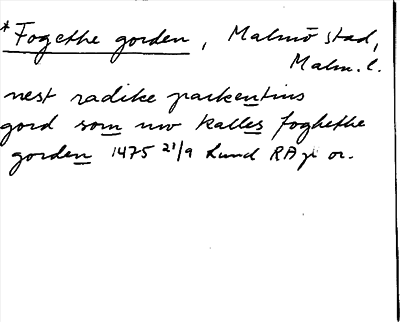 * Fogethe gorden, Malmö stad,
Malm. l.
nest radike parkentins
gord som nw kalles foghethe
gorden 1475 21/9 Lund RAp or.